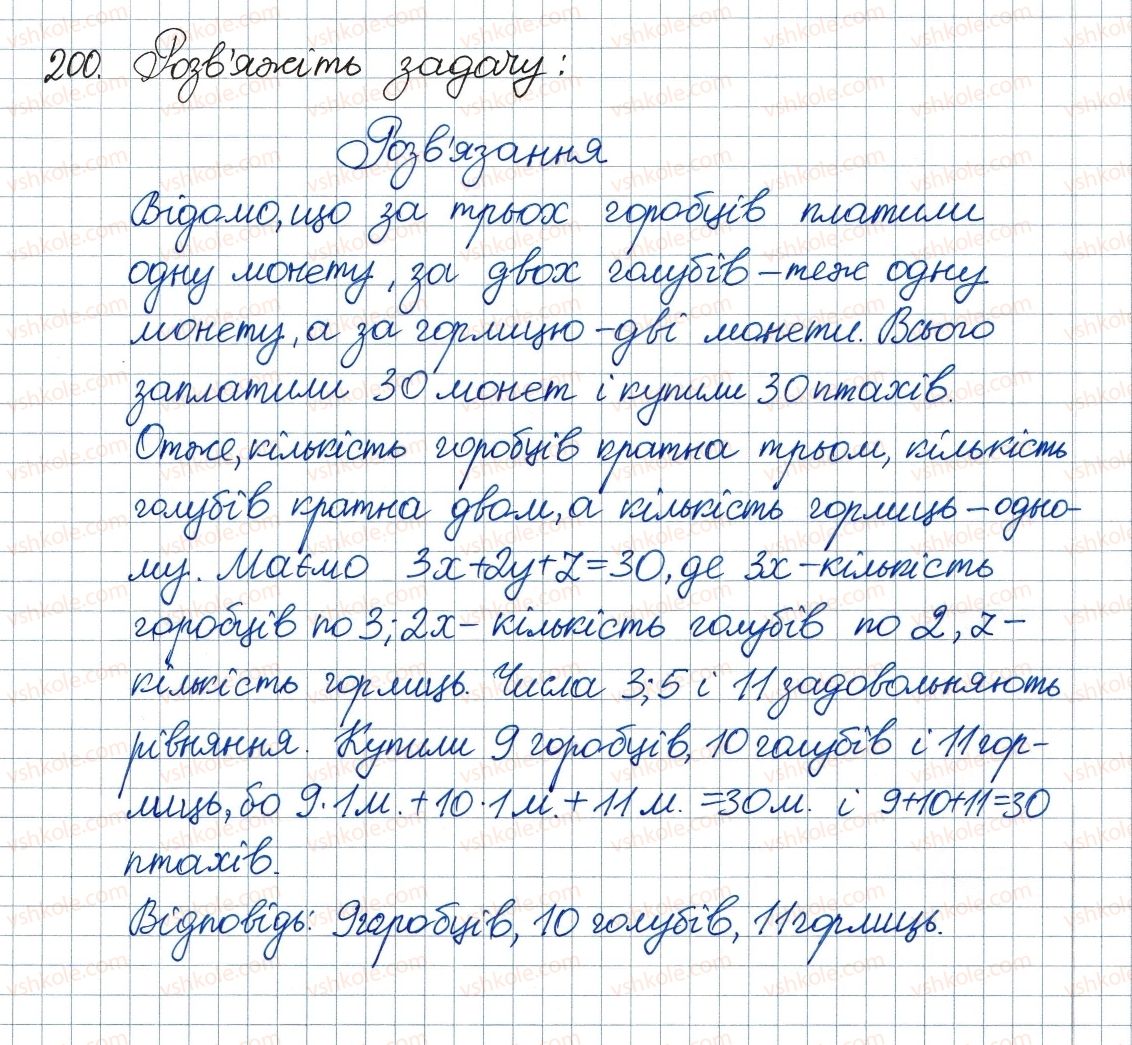 200. Розв'яжіть задачу:
Розв'язання
Відомо, що за трьох горобців платили
одну монету, за двох голубів – теж одну
монету, а за горлицю – дві монети. Всього
заплатили 30 монет і купили 30 птахів.
Отже, кількість горобців кратна трьом, кількість
голубів кратна двом, а кількість горлиць – одно-
му. Маємо 3x+2y+z=30, де 3x – кількість
горобців по 3; 2x – кількість голубів по 2, z –
кількість горлиць. Числа 3; 5 і 11 задовольняють
рівняння. Купили 9 горобців, 10 голубів і 11 гор-
лиць, бо 9·1м. + 10·1м. + 11м. = 30м. і 9+10+11=30
птахів.
Відповідь: 9 горобців, 10 голубів, 11 горлиць.
vshkole.com